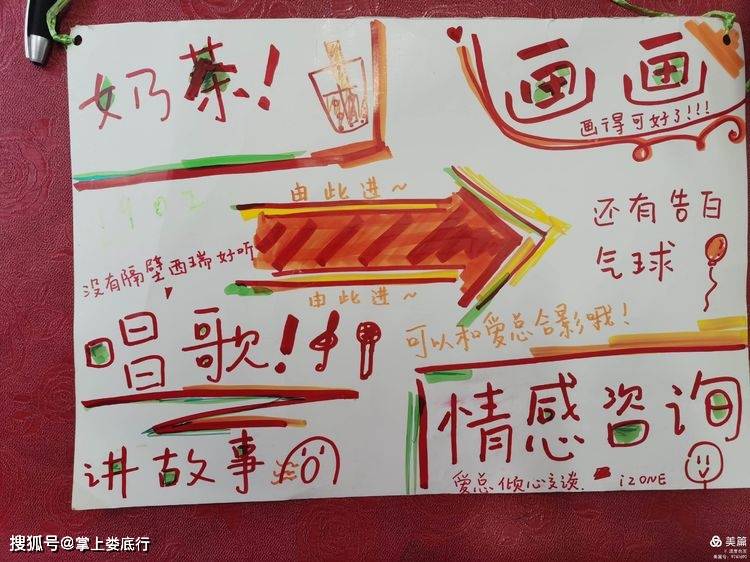 奶茶!
画画
画得可好了!!!
1902
由此进~
还有告白
气球
没有隔壁西瑞好听
由此进~
可以和爱总合影哦!
唱歌!
情感咨询
讲故事
爱总倾心交谈.
iZONE
搜狐号@掌上娄底行
美篇